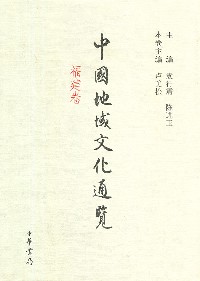 主编 袁行霈 陈进玉
本卷主编 卢美松
中國地域文化通覽
福建卷
中華書局